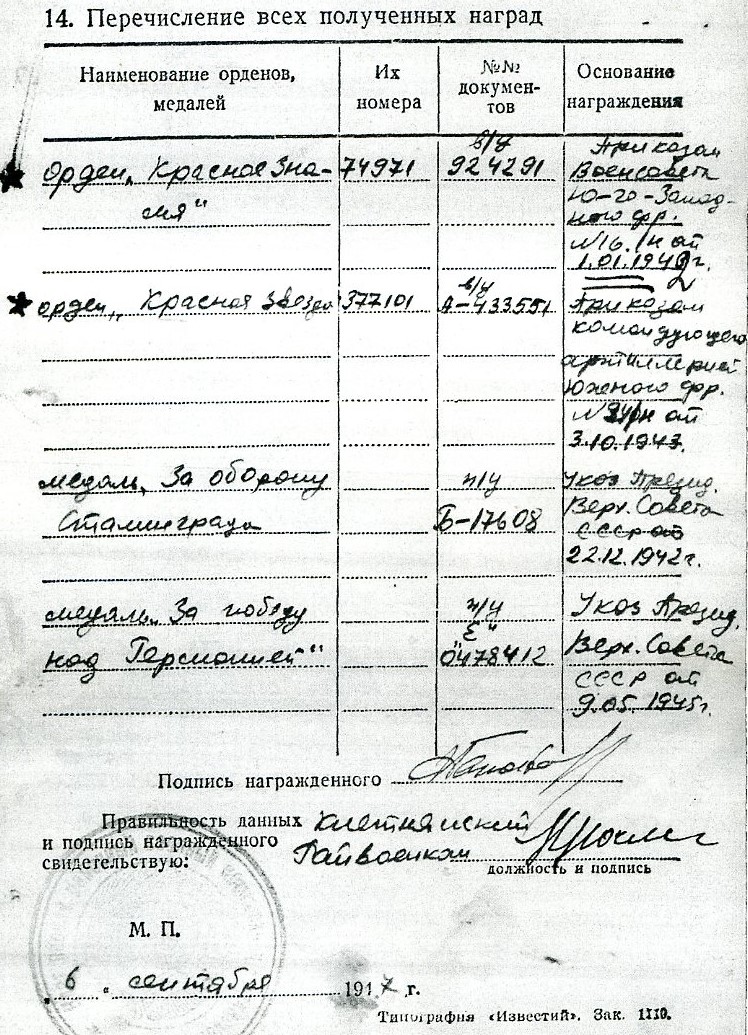 14. Перечисление всех полученных наград
Наименование орденов, медалей
Их номера
№№ документов
Основание награждения
орден „Красное Зна-
мя"
74971
в/у
924291
Приказом
Военсовета
Ю-го-Запад-
ного фр.
№16/н от
1.01.1942г.
орден „Красная Звезда
377101
в/у
А-433551
Приказом
командующего
артиллерией
Южного фр.
от
3.10.1943.
медаль „За оборону
Сталинграда
п/у
Б-17608
Указ Презид.
Верх. Совета
СССР от
22.12.1942г.
медаль „За победу
над Германией"
п/у
"Е"
0478412
Указ Презид.
Верх. Совета
СССР от
9.05.1945г.
Подпись награжденного
Правильность данных
и подпись награжденного
свидетельствую:
Клетнянский
Райвоенком
должность и подпись
М. П.
„6 „ сентября 1947 г.
Типография «Известий». Зак. 1110.